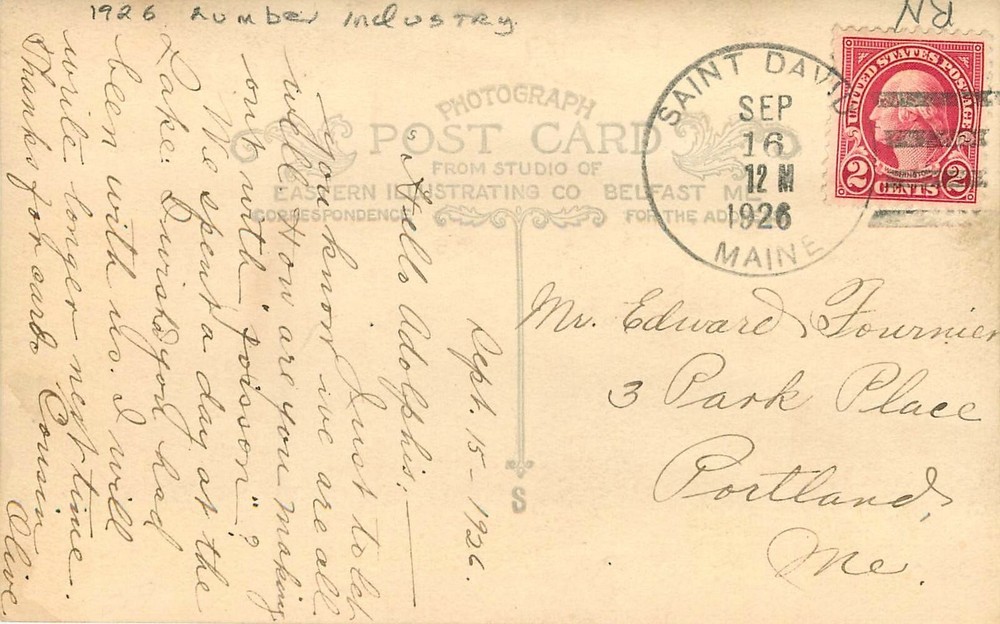 1926 Lumber Industry
RN
PHOTOGRAPH
POST CARD
FROM STUDIO OF
EASTERN ILLUSTRATING CO BELFAST ME.
CORRESPONDENCE
FOR THE ADDRESS
S
SAINT DAVID
SEP
16
12 M
1926
MAINE
UNITED STATES POSTAGE
WASHINGTON
2 CENTS 2
Sept. 15-1926.
Hello Adolphis:—
Just to let
you know we are all
well. How are you making
out with "poison"?
We spent a day at the
Lake. I wished you had
been with us. I will
write longer next time.
Thanks for card. Cousin
Olive.
Mr. Edward Fournier
3 Park Place
Portland,
Me.